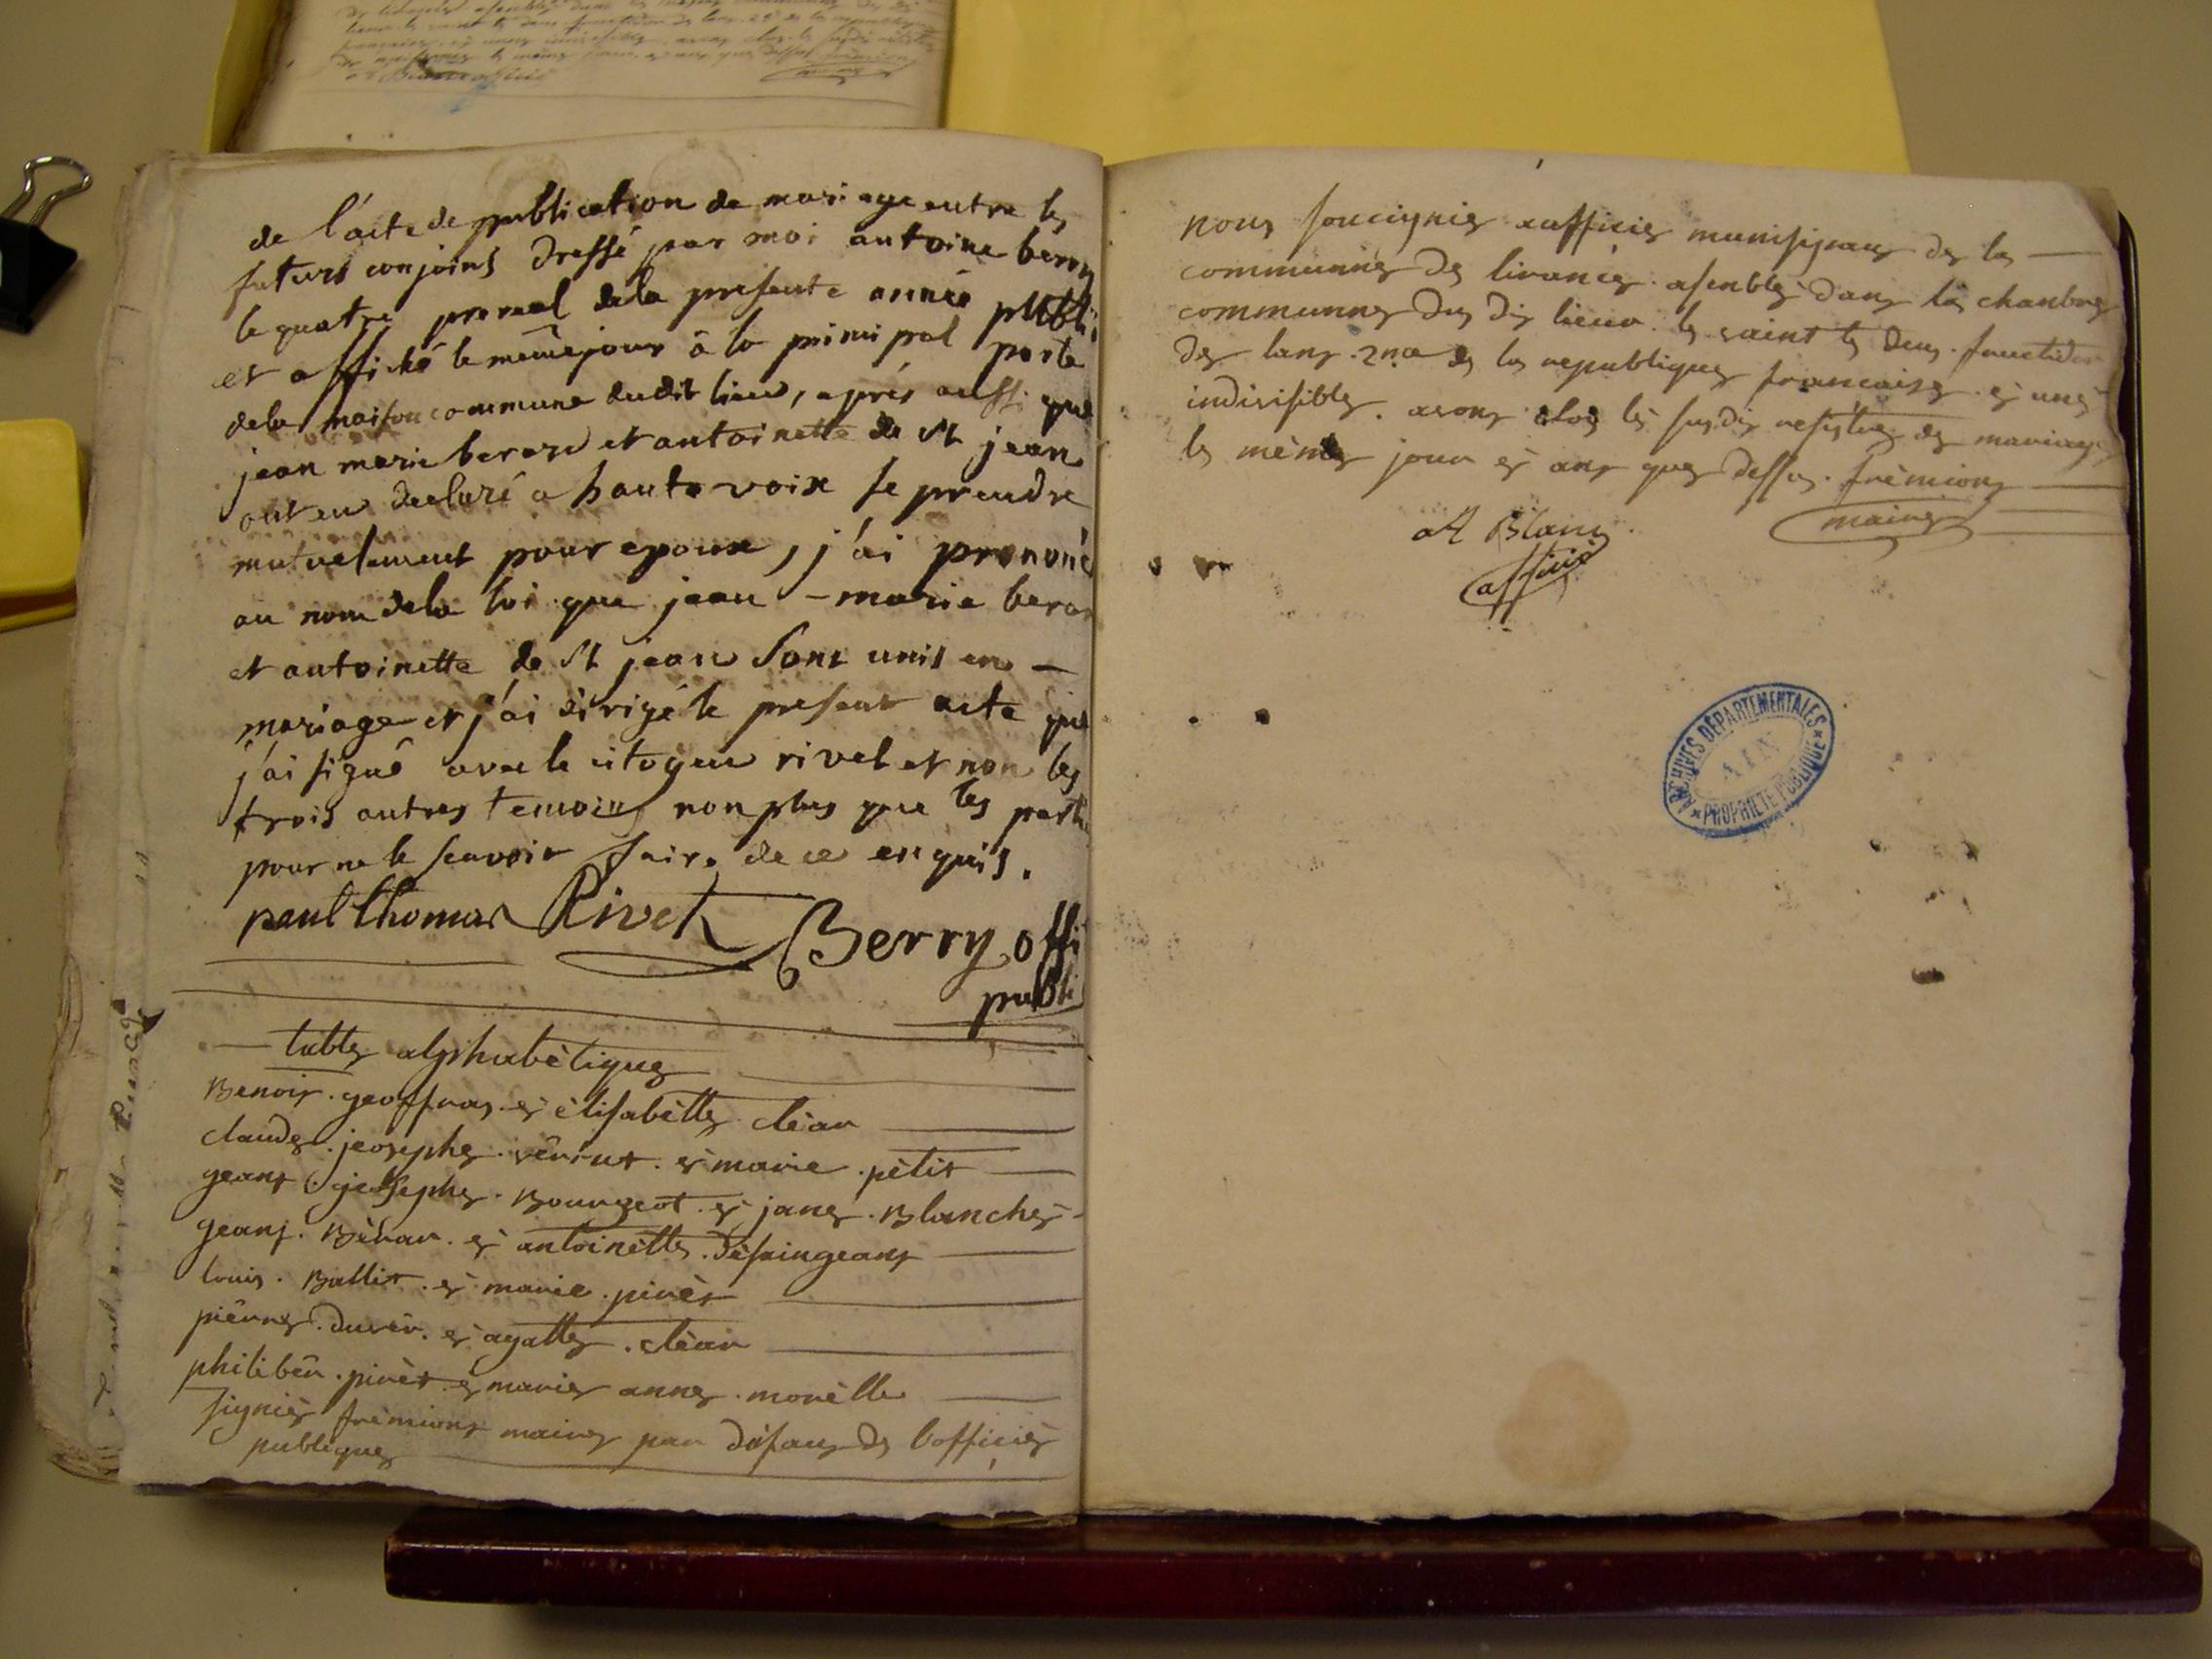 de l'acte de publication de mariage entre les
futurs conjoins dressé par moi antoine berry
le quatre prereal dela presente année publié
et affiché le même jour à la principal porte
dela maison commune dudit lieu, après aussi que
jean marie berard et antoinette de st jean
ont eu declaré a haute voix se prendre
mutuelement pour epoux, j'ai prononcé
au nom dela loi que jean - marie berar
et antoinette de st jean sont unis en -
mariage et j'ai dirigé le present acte que
j'ai signé avec le citoyen rivet et non les
trois autres temoins non plus que les parti
pour ne le scavoir faire de ce enquis.
paul thomas Rivet Berry offi
publi
table alphabètique
Benoir . geoffray . et èlisabètte clèar
claude . jeosephe . et marie . pètit
geans . josephe . Bourgeot . et jane . Blanche
geans . Bèrar . et antoinètte . dèsaingeans
louis . Ballit . et marie . pivèt
pièrre . duvèr . et agatte . clèar
philibèr . pivèt et marie anne . morèlle
signiès frèmions maire par dèfaus de l'officiès
publique
nous souciignies officies munisipaus de la
commune de livance . asenblès dans la chanbre
commune du dis lieux . le vaint te deus . fructidor
de lans . 2me de la republique francaise . et une
indivisible . avons clos lès susdis resistre de mariage
le mème jour et ans que dessus . frèmions
maire
A Blanc .
officie
ARCHIVES DÉPARTEMENTALES
AIN
PROPRIÉTÉ PUBLIQUE